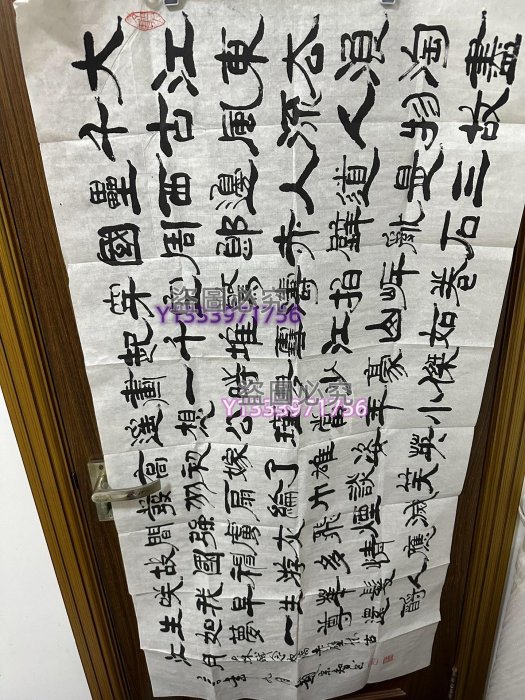 大江東去浪淘盡
千古風流人物故
壘西邊人道是三
國周郎赤壁亂石
穿空驚濤拍岸卷
起千堆雪江山如
畫一時多少豪傑
遙想公瑾當年小
喬初嫁了雄姿英
發羽扇綸巾談笑
間强虜灰飛煙滅
故國神遊多情應
咲我早生華髮人
生如夢一尊還酹
江月
盜圖必究
Y1353971756
盜圖必究
Y1353971756